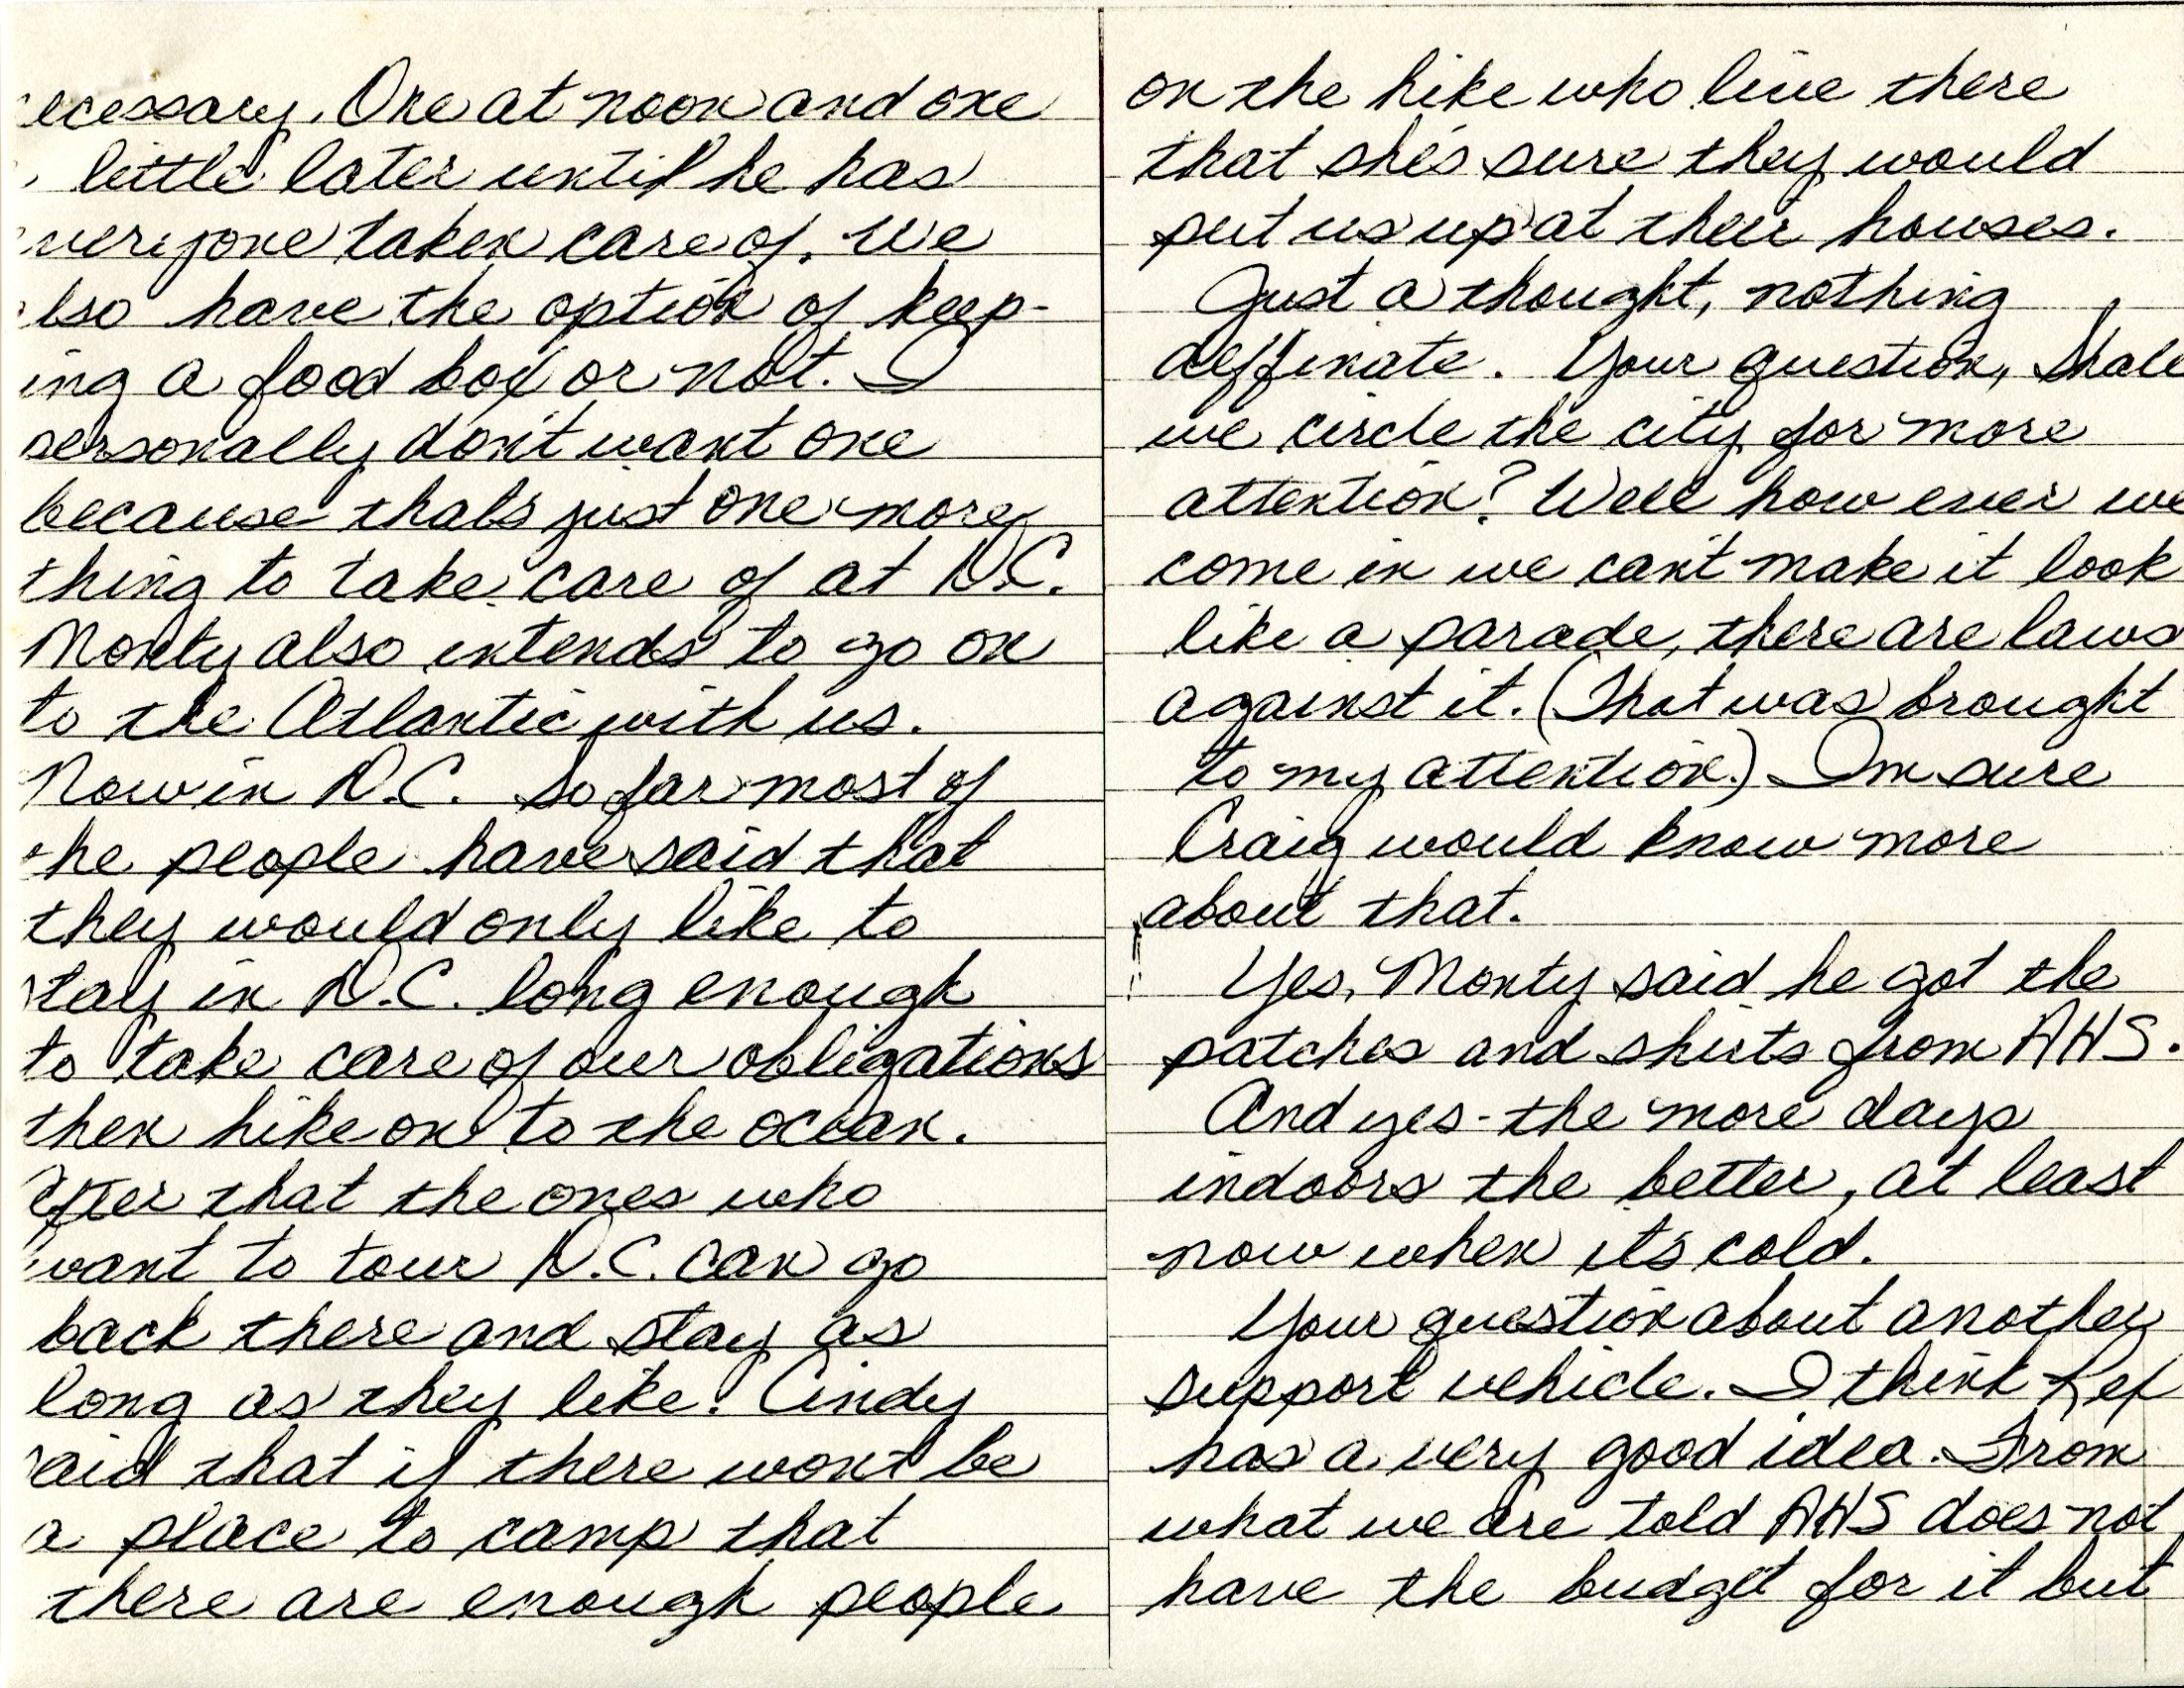 ecessary. One at noon and one
little later until he has
veryone taken care of. We
lso have the option of keep-
ing a food box or not. I
personally don't want one
because thats just one more
thing to take care of at D.C.
Monty also intends to go on
to the Atlantic with us.
Now in D.C. so far most of
the people have said that
they would only like to
stay in D.C. long enough
to take care of our obligations
then hike on to the ocean.
After that the ones who
want to tour D.C. can go
back there and stay as
long as they like. Cindy
said that if there won't be
a place to camp that
there are enough people
on the hike who live there
that she's sure they would
put us up at their houses.
Just a thought, nothing
deffinate. Your question, shall
we circle the city for more
attention? Well how ever we
come in we can't make it look
like a parade, there are laws
against it. (That was brought
to my attention.) Im sure
Craig would know more
about that.
Yes, Monty said he got the
patches and shirts from AHS.
And yes - the more days
indoors the better, at least
now when it's cold.
Your question about another
support vehicle. I think
has a very good idea. From
what we are told AHS does not
have the budget for it but